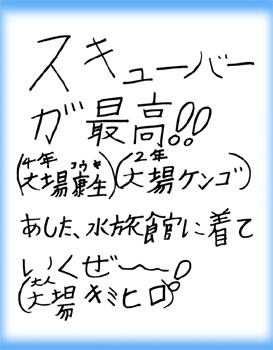 スキューバー
が最高!!
4年 コウキ 2年
(大場康生)(大場ケンゴ)
あした、水旅館に着て
いくぜ〜〜!
大人
(大場キミヒロ)